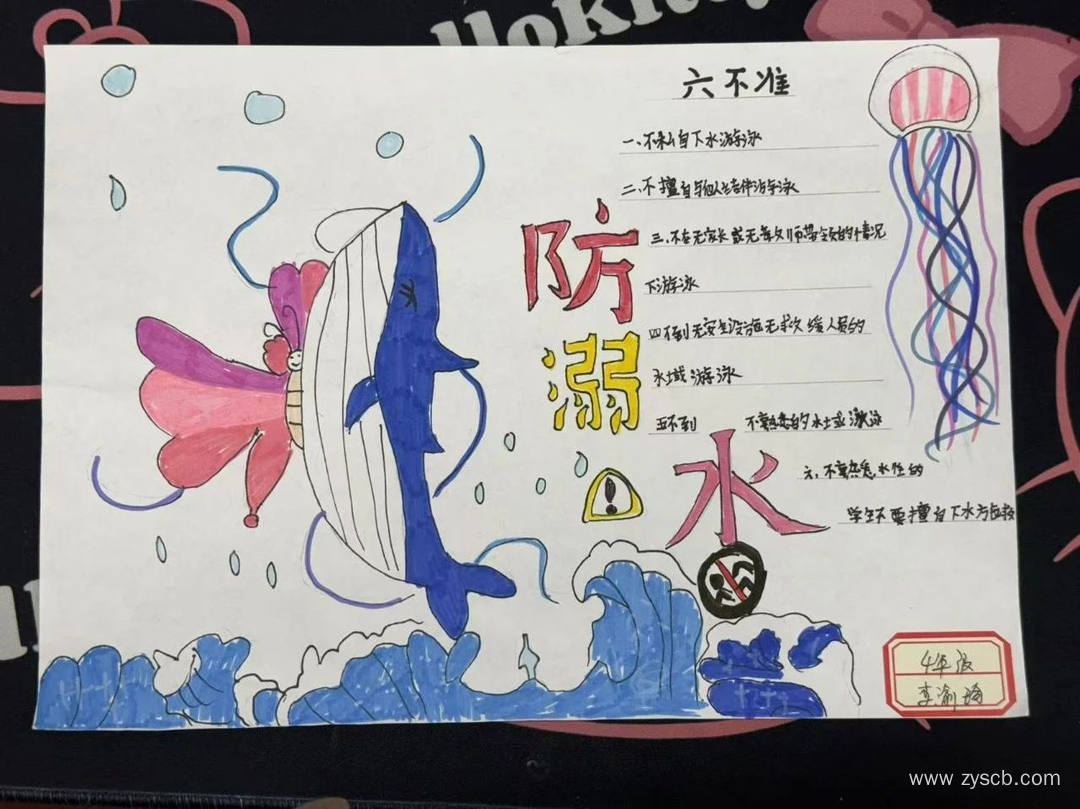 HelloKitty
六不准
一、不私自下水游泳
二、不擅自与他人结伴游泳
三、不在无家长或无教师带领的情况
下游泳
四不到无安全设施无救援人员的
水域游泳
五不到 不熟悉的水域游泳
六、不熟悉水性的
学生不要擅自下水方面救
防
溺
水
!
4年 班
李渝
www.zyscb.com